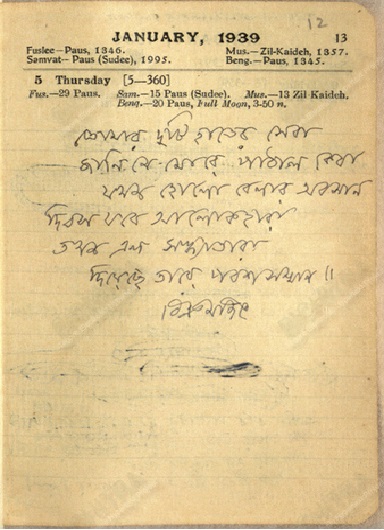 12
JANUARY, 1939 13
Fuslee—Paus, 1346. Mus.—Zil-Kaideh, 1357.
Samvat—Paus (Sudee), 1995. Beng.—Paus, 1345.
5 Thursday [5—360]
Fus.—29 Paus. Sam.—15 Paus (Sudee). Mus.—13 Zil Kaideh,
Beng.—20 Paus, Full Moon, 3-50 m.
তোমার দুটি হাতের সেবা
জানি নে মোরে পাঠাল কেবা
যখন হোলো বেলার অবসান
দিবস যবে আলোকহারা
তখন এসে সন্ধ্যাতারা
দিয়েছে তারে পরশ সম্মান॥